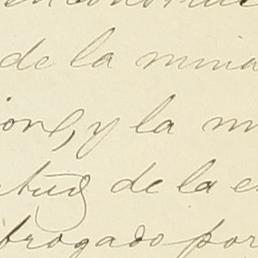 de la mina
ione, y la m
ctud de la e
brogado por